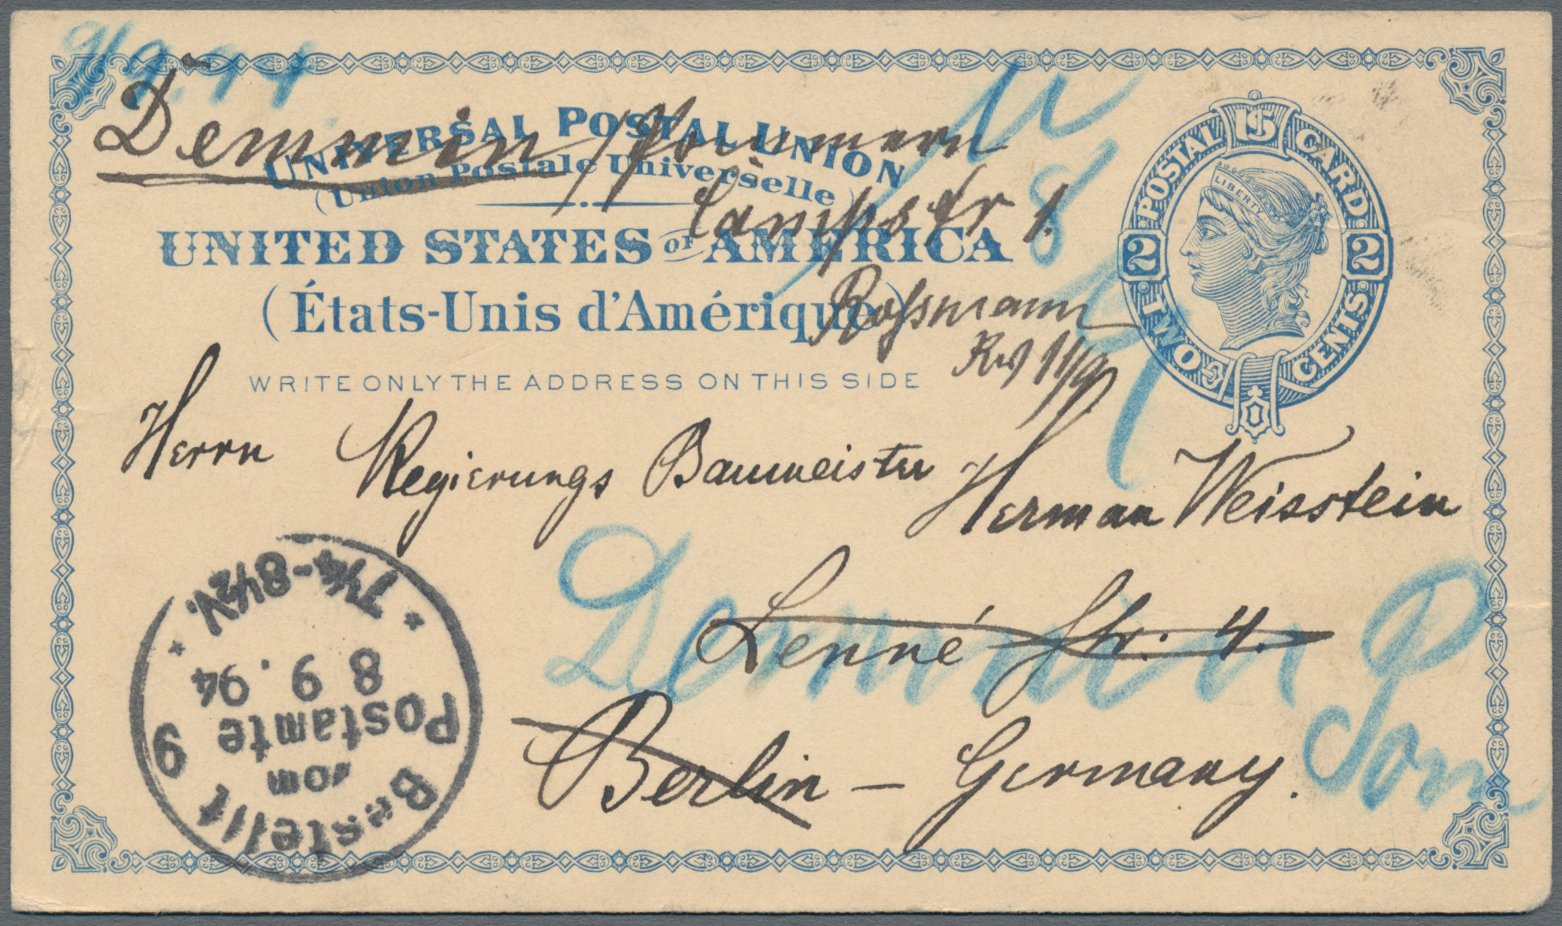 Demmin / Pommern
UNIVERSAL POSTAL UNION
(Union Postale Universelle)
Campstr 1.
UNITED STATES OF AMERICA
(États-Unis d'Amérique)
Rossmann
WRITE ONLY THE ADDRESS ON THIS SIDE
POSTAL CARD
U S
LIBERTY
2 2
TWO CENTS
Herrn Regierungs Baumeister Herman Weisstein
Lenné Str. 4.
Berlin – Germany.
Demmin Pom
8
Bestellt
vom
Postamte 9
8 9. 94
7¼-8½V.